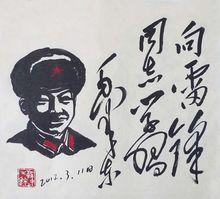 向雷锋
同志学习
毛泽东
2012.3.11日